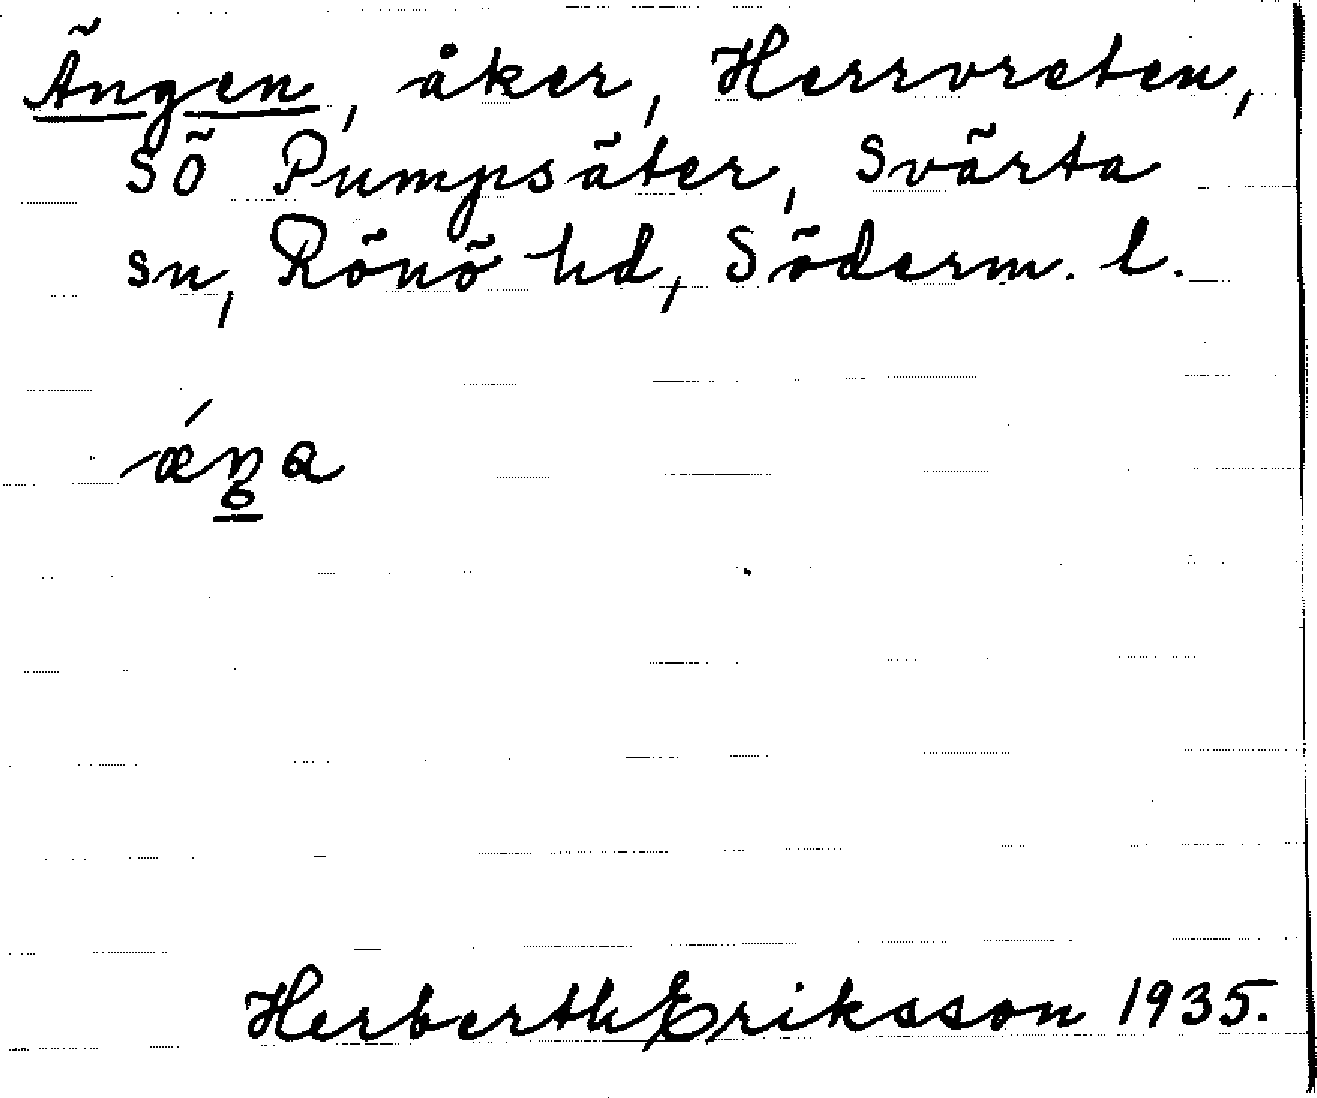 Ängen, åker, Herrvreten,
SÖ Pumpsäter, Svärta
sn, Rönö hd, Söderm. l.
Herberth Eriksson 1935.